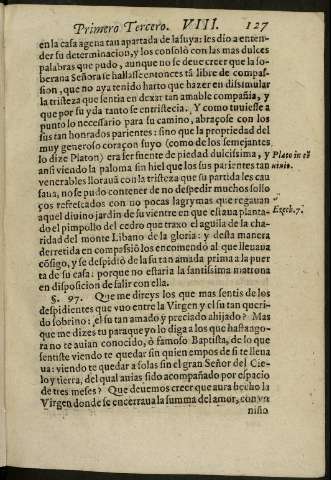 Primero Tercero. VIII. 127
en la casa agena tan apartada de la suya: les dio a enten-
der su determinacion, y los consolò con las mas dulces
palabras que pudo, aunque no se deve creer que la so-
berana Señora se hallasse entonces tã libre de compas-
sion, que no aya tenido harto que hazer en dissimular
la tristeza que sentia en dexar tan amable compañia, y
que por su yda tanto se entristecia. Y como tuuiesse a
punto lo necessario para su camino, abraçose con los
sus tan honrados parientes: sino que la propriedad del
muy generoso coraçon suyo (como de los semejantes
lo dize Platon) era ser fuente de piedad dulcissima, y
ansi viendo la paloma sin hiel que los sus parientes tan
venerables llorauã con la tristeza que su partida les cau
saua, no se pudo contener de no despedir muchos sollo
ços refrescados con no pocas lagrymas que regauan
aquel diuino jardin de su vientre en que estaua planta-
do el pimpollo del cedro que traxo el aguila de la cha-
ridad del monte Libano de la gloria: y desta manera
derretida en compassiõ los encomendò al que lleuaua
cõsigo, y se despidiò de la su tan amada prima a la puer
ta de su casa: porque no estaria la santissima matrona
en disposicion de salir con ella.
Plato in cõ
uiuio.
Ezech. 7.
§. 97. Que me direys los que mas sentis de los
despidientes que vuo entre la Virgen y el su tan queri-
do sobrino: ¿el su tan amado y preciado ahijado? Mas
que me dizes tu para que yo lo diga a los que hasta ago-
ra no te auian conocido, ò famoso Baptista, de lo que
sentiste viendo te quedar sin quien empos de si te lleua
ua: viendo te quedar a solas sin el gran Señor del Cie-
lo y tierra, del qual auias sido acompañado por espacio
de tres meses? Que deuemos creer que aura hecho la
Virgen donde se encerraua la summa del amor, con vn
niño